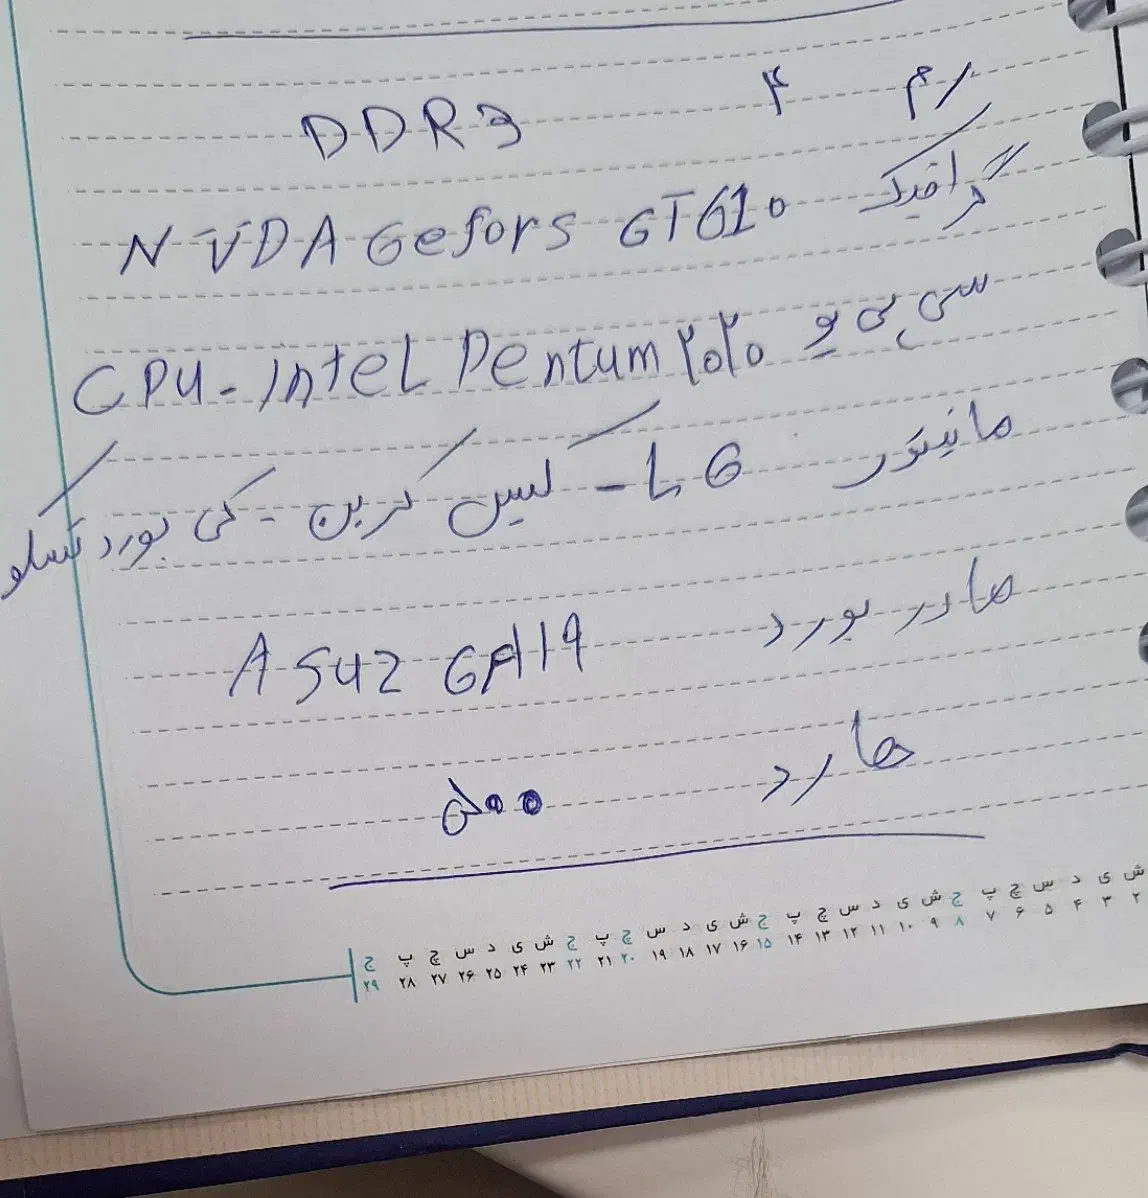 رم ۴ DDR3
گرافیک NVDA Gefors GT610
سی پی یو CPU-Intel Pentum ۲۰۲۰
مانیتور LG - کیس گرین - کی بورد تسکو
مادر بورد ASUZ GAH19
هارد ۵۰۰
ش ی د س چ پ ج ش ی د س چ پ ج ش ی د س چ پ ج ش ی د س چ پ ج
۲ ۳ ۴ ۵ ۶ ۷ ۸ ۹ ۱۰ ۱۱ ۱۲ ۱۳ ۱۴ ۱۵ ۱۶ ۱۷ ۱۸ ۱۹ ۲۰ ۲۱ ۲۲ ۲۳ ۲۴ ۲۵ ۲۶ ۲۷ ۲۸ ۲۹